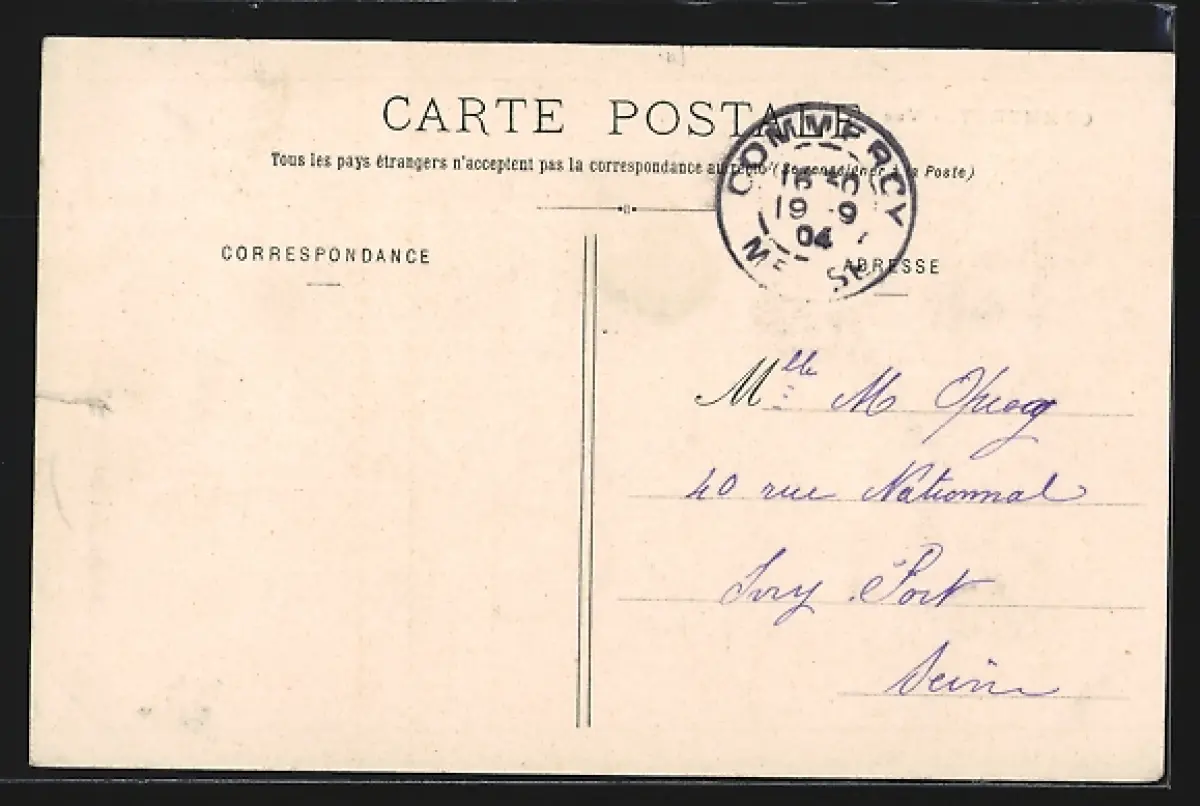 CARTE POSTALE
Tous les pays étrangers n'acceptent pas la correspondance au recto (Se renseigner à la Poste)
COMMERCY
19 9
04
MEUSE
CORRESPONDANCE
ADRESSE
Mlle M
40 rue Nationnal
Ivry Port
Seine